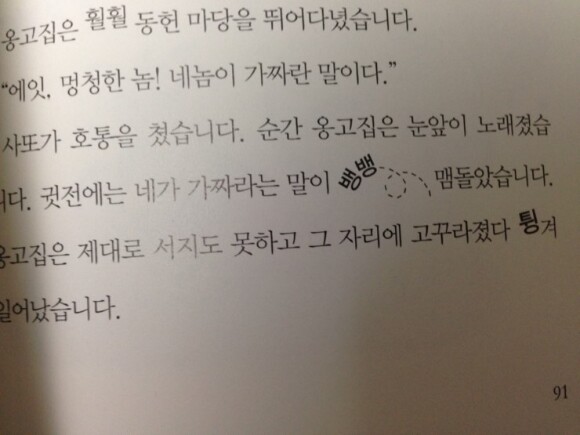 옹고집은 훨훨 동헌 마당을 뛰어다녔습니다.
“에잇, 멍청한 놈! 네놈이 가짜란 말이다.”
사또가 호통을 쳤습니다. 순간 옹고집은 눈앞이 노래졌습
니다. 귓전에는 네가 가짜라는 말이 뱅뱅 맴돌았습니다.
옹고집은 제대로 서지도 못하고 그 자리에 고꾸라졌다 튕겨
일어났습니다.
91